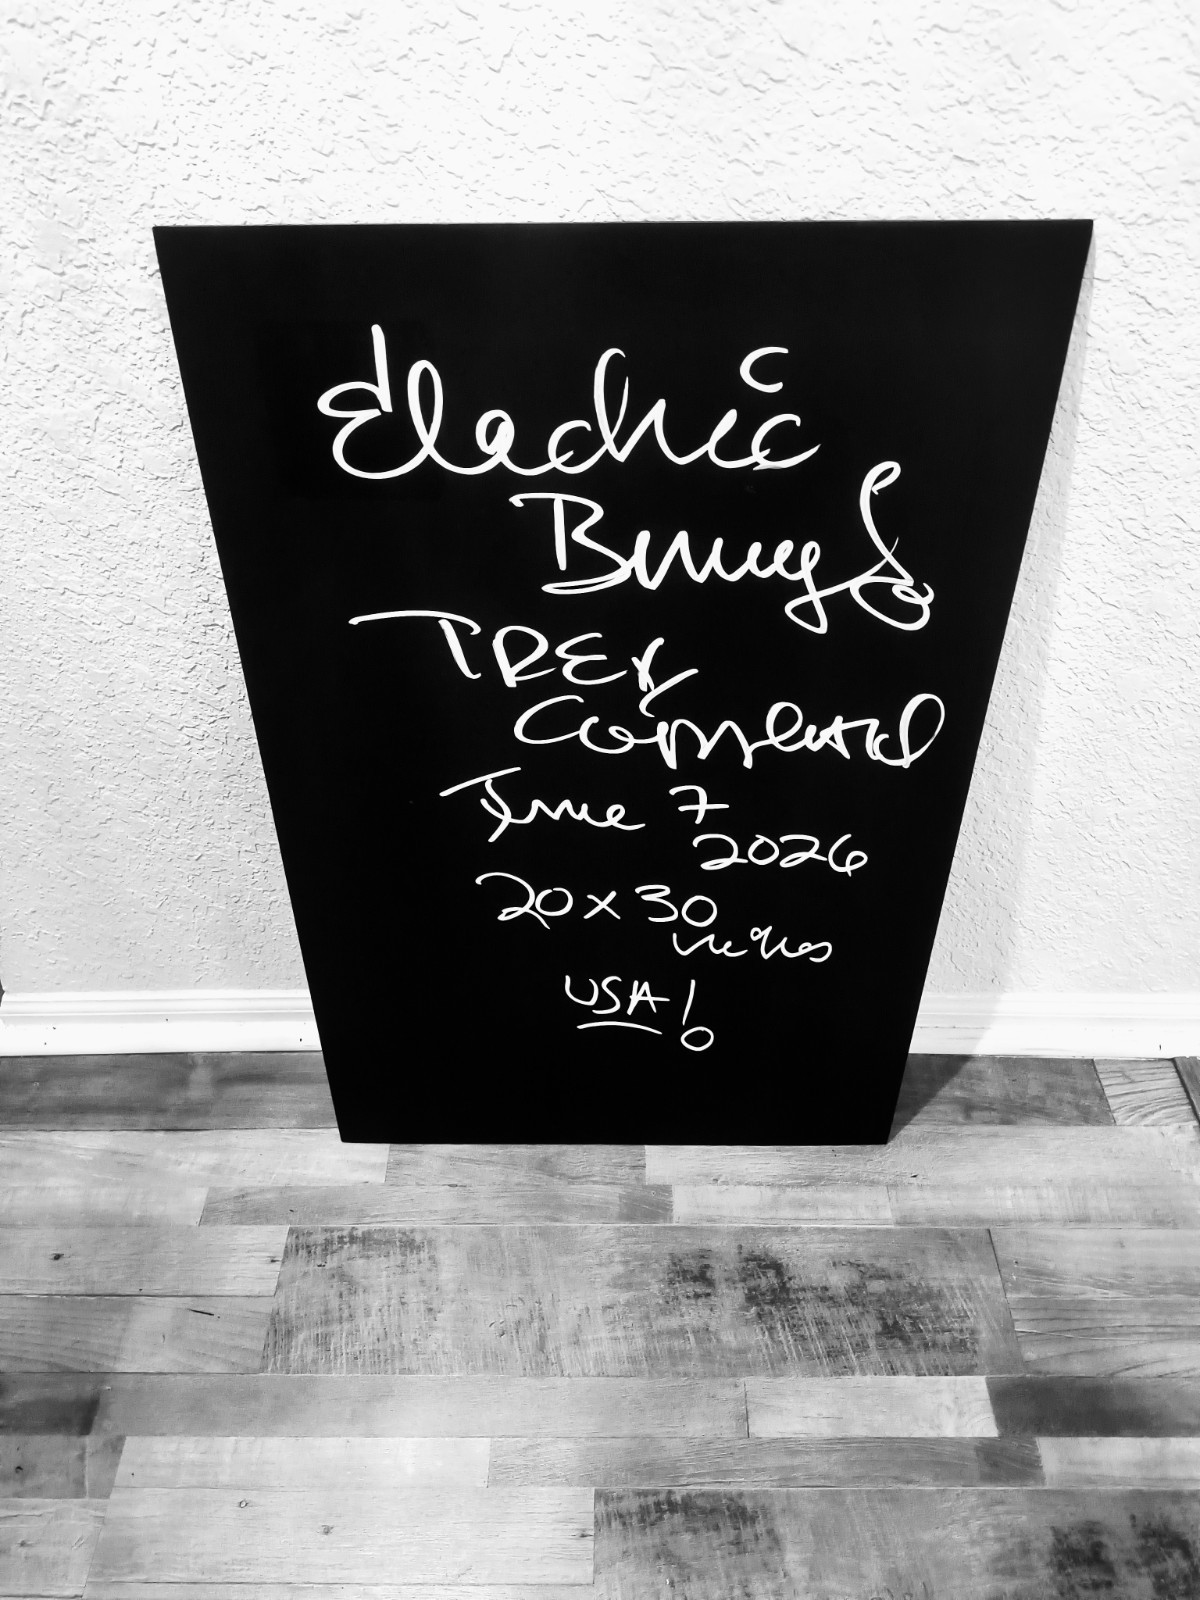 Electric
Bunny!
TREY
Completed
June 7
2026
20 x 30
inches
USA!